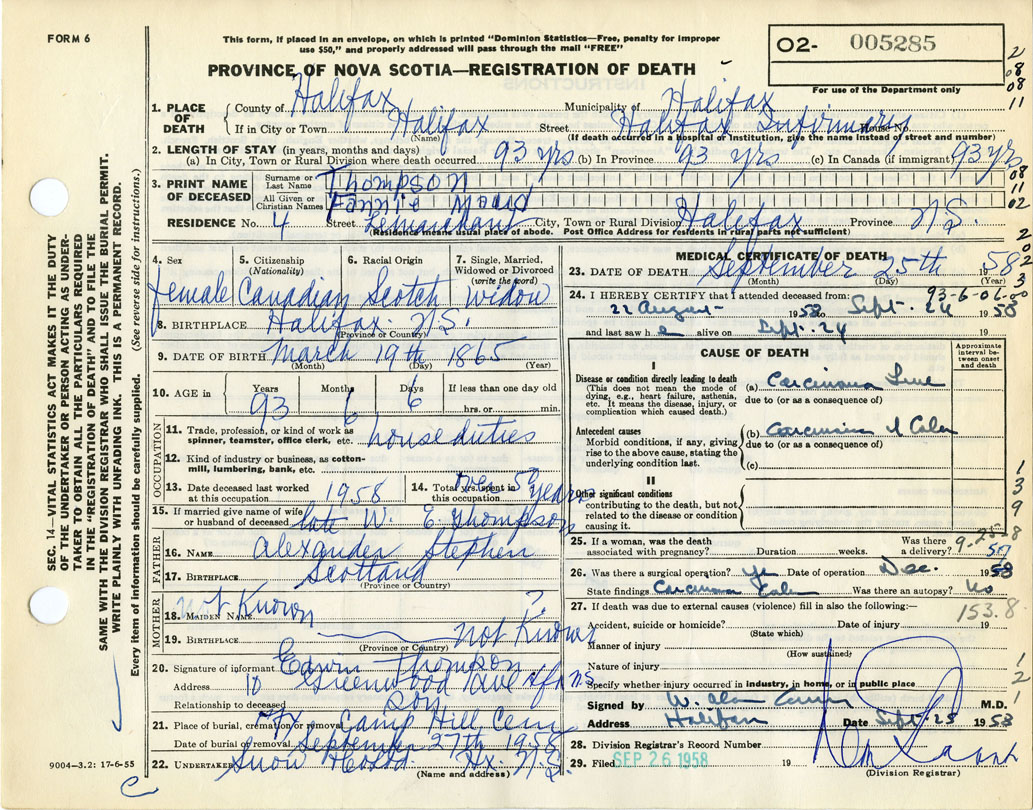 FORM 6
This form, if placed in an envelope, on which is printed "Dominion Statistics—Free, penalty for improper
use $50," and properly addressed will pass through the mail "FREE"
O2- 005285
For use of the Department only
PROVINCE OF NOVA SCOTIA—REGISTRATION OF DEATH
1. PLACE OF DEATH
County of Halifax Municipality of Halifax
If in City or Town Halifax Street Halifax Infirmary House No.
(Name) (If death occurred in a hospital or institution, give the name instead of street and number)
2. LENGTH OF STAY (in years, months and days)
(a) In City, Town or Rural Division where death occurred 93 yrs (b) In Province 93 yrs (c) In Canada (if immigrant) 93 yrs
3. PRINT NAME OF DECEASED
Surname or Last Name Thompson
All Given or Christian Names Fannie Maud
RESIDENCE No. 4 Street Lemarchant City, Town or Rural Division Halifax Province N.S.
(Residence means usual place of abode. Post Office Address for residents in rural parts not sufficient)
4. Sex female
5. Citizenship (Nationality) Canadian
6. Racial Origin Scotch
7. Single, Married, Widowed or Divorced (write the word) Widow
8. BIRTHPLACE Halifax N.S.
(Province or Country)
9. DATE OF BIRTH March 19th 1865
(Month) (Day) (Year)
10. AGE in Years 93 Months 6 Days 6 If less than one day old
hrs. or min.
OCCUPATION
11. Trade, profession, or kind of work as spinner, teamster, office clerk, etc. house duties
12. Kind of industry or business, as cotton-mill, lumbering, bank, etc.
13. Date deceased last worked at this occupation 1958
14. Total yrs. spent in this occupation 50 years
15. If married give name of wife or husband of deceased late W. E. Thompson
FATHER
16. NAME Alexander Stephen
17. BIRTHPLACE Scotland
(Province or Country)
MOTHER
18. MAIDEN NAME not Known ?
19. BIRTHPLACE not Known
(Province or Country)
20. Signature of informant Edwin Thompson
Address 10 Greenwood Ave Hfx NS
Relationship to deceased son
21. Place of burial, cremation or removal Hfx Camp Hill Cem
Date of burial or removal September 27th 1958
22. UNDERTAKER Snow Hx. N.S.
(Name and address)
9004—3.2: 17-6-55
C
SEC. 14—VITAL STATISTICS ACT MAKES IT THE DUTY
OF THE UNDERTAKER OR PERSON ACTING AS UNDER-
TAKER TO OBTAIN ALL THE PARTICULARS REQUIRED
IN THE "REGISTRATION OF DEATH" AND TO FILE THE
SAME WITH THE DIVISION REGISTRAR WHO SHALL ISSUE THE BURIAL PERMIT.
WRITE PLAINLY WITH UNFADING INK. THIS IS A PERMANENT RECORD.
Every item of information should be carefully supplied. (See reverse side for instructions.)
MEDICAL CERTIFICATE OF DEATH
23. DATE OF DEATH September 25th 1958
(Month) (Day) (Year)
93-6-06.00
24. I HEREBY CERTIFY that I attended deceased from:
22 August 1958 to Sept. 24 1958
and last saw h e alive on Sept. 24 19
CAUSE OF DEATH
Approximate interval between onset and death
I
Disease or condition directly leading to death
(This does not mean the mode of dying, e.g., heart failure, asthenia, etc. It means the disease, injury, or complication which caused death.)
(a) Carcinoma
due to (or as a consequence of)
Antecedent causes
Morbid conditions, if any, giving rise to the above cause, stating the underlying condition last.
(b) Carcinoma of Colon
due to (or as a consequence of)
(c)
II
Other significant conditions
contributing to the death, but not related to the disease or condition causing it.
25. If a woman, was the death associated with pregnancy? Duration weeks. Was there a delivery?
9-25-8
26. Was there a surgical operation? Yes Date of operation Dec. 19
State findings Carcinoma Colon Was there an autopsy? No
27. If death was due to external causes (violence) fill in also the following:—
153.8
Accident, suicide or homicide? Date of injury 19
(State which)
Manner of injury
(How sustained)
Nature of injury
Specify whether injury occurred in industry, in home, or in public place
Signed by M.D.
Address Halifax Date Sept. 25 1958
28. Division Registrar's Record Number
29. Filed SEP 26 1958 19
(Division Registrar)